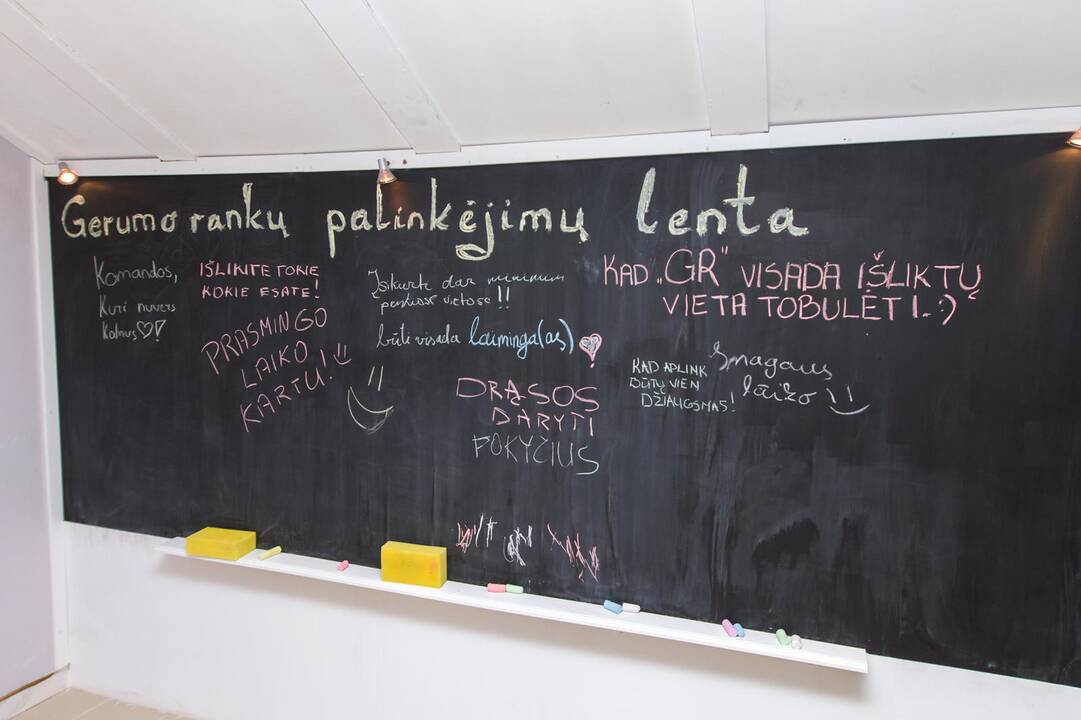 Gerumo rankų palinkėjimų lenta
Komandos,
Kuri nuvers
Kalnus!
IŠLIKITE TOKIE
KOKIE ESATE!
PRASMINGO
LAIKO
KARTU!
Įsikurti dar minimum
vietose!!
būti visada laiminga(as)
DRĄSOS
DARYTI
POKYČIUS
KAD „GR" VISADA IŠLIKTŲ
VIETA TOBULĖTI. :)
KAD APLINK
BŪTŲ VIEN
DŽIAUGSMAS!
Smagaus
laiko